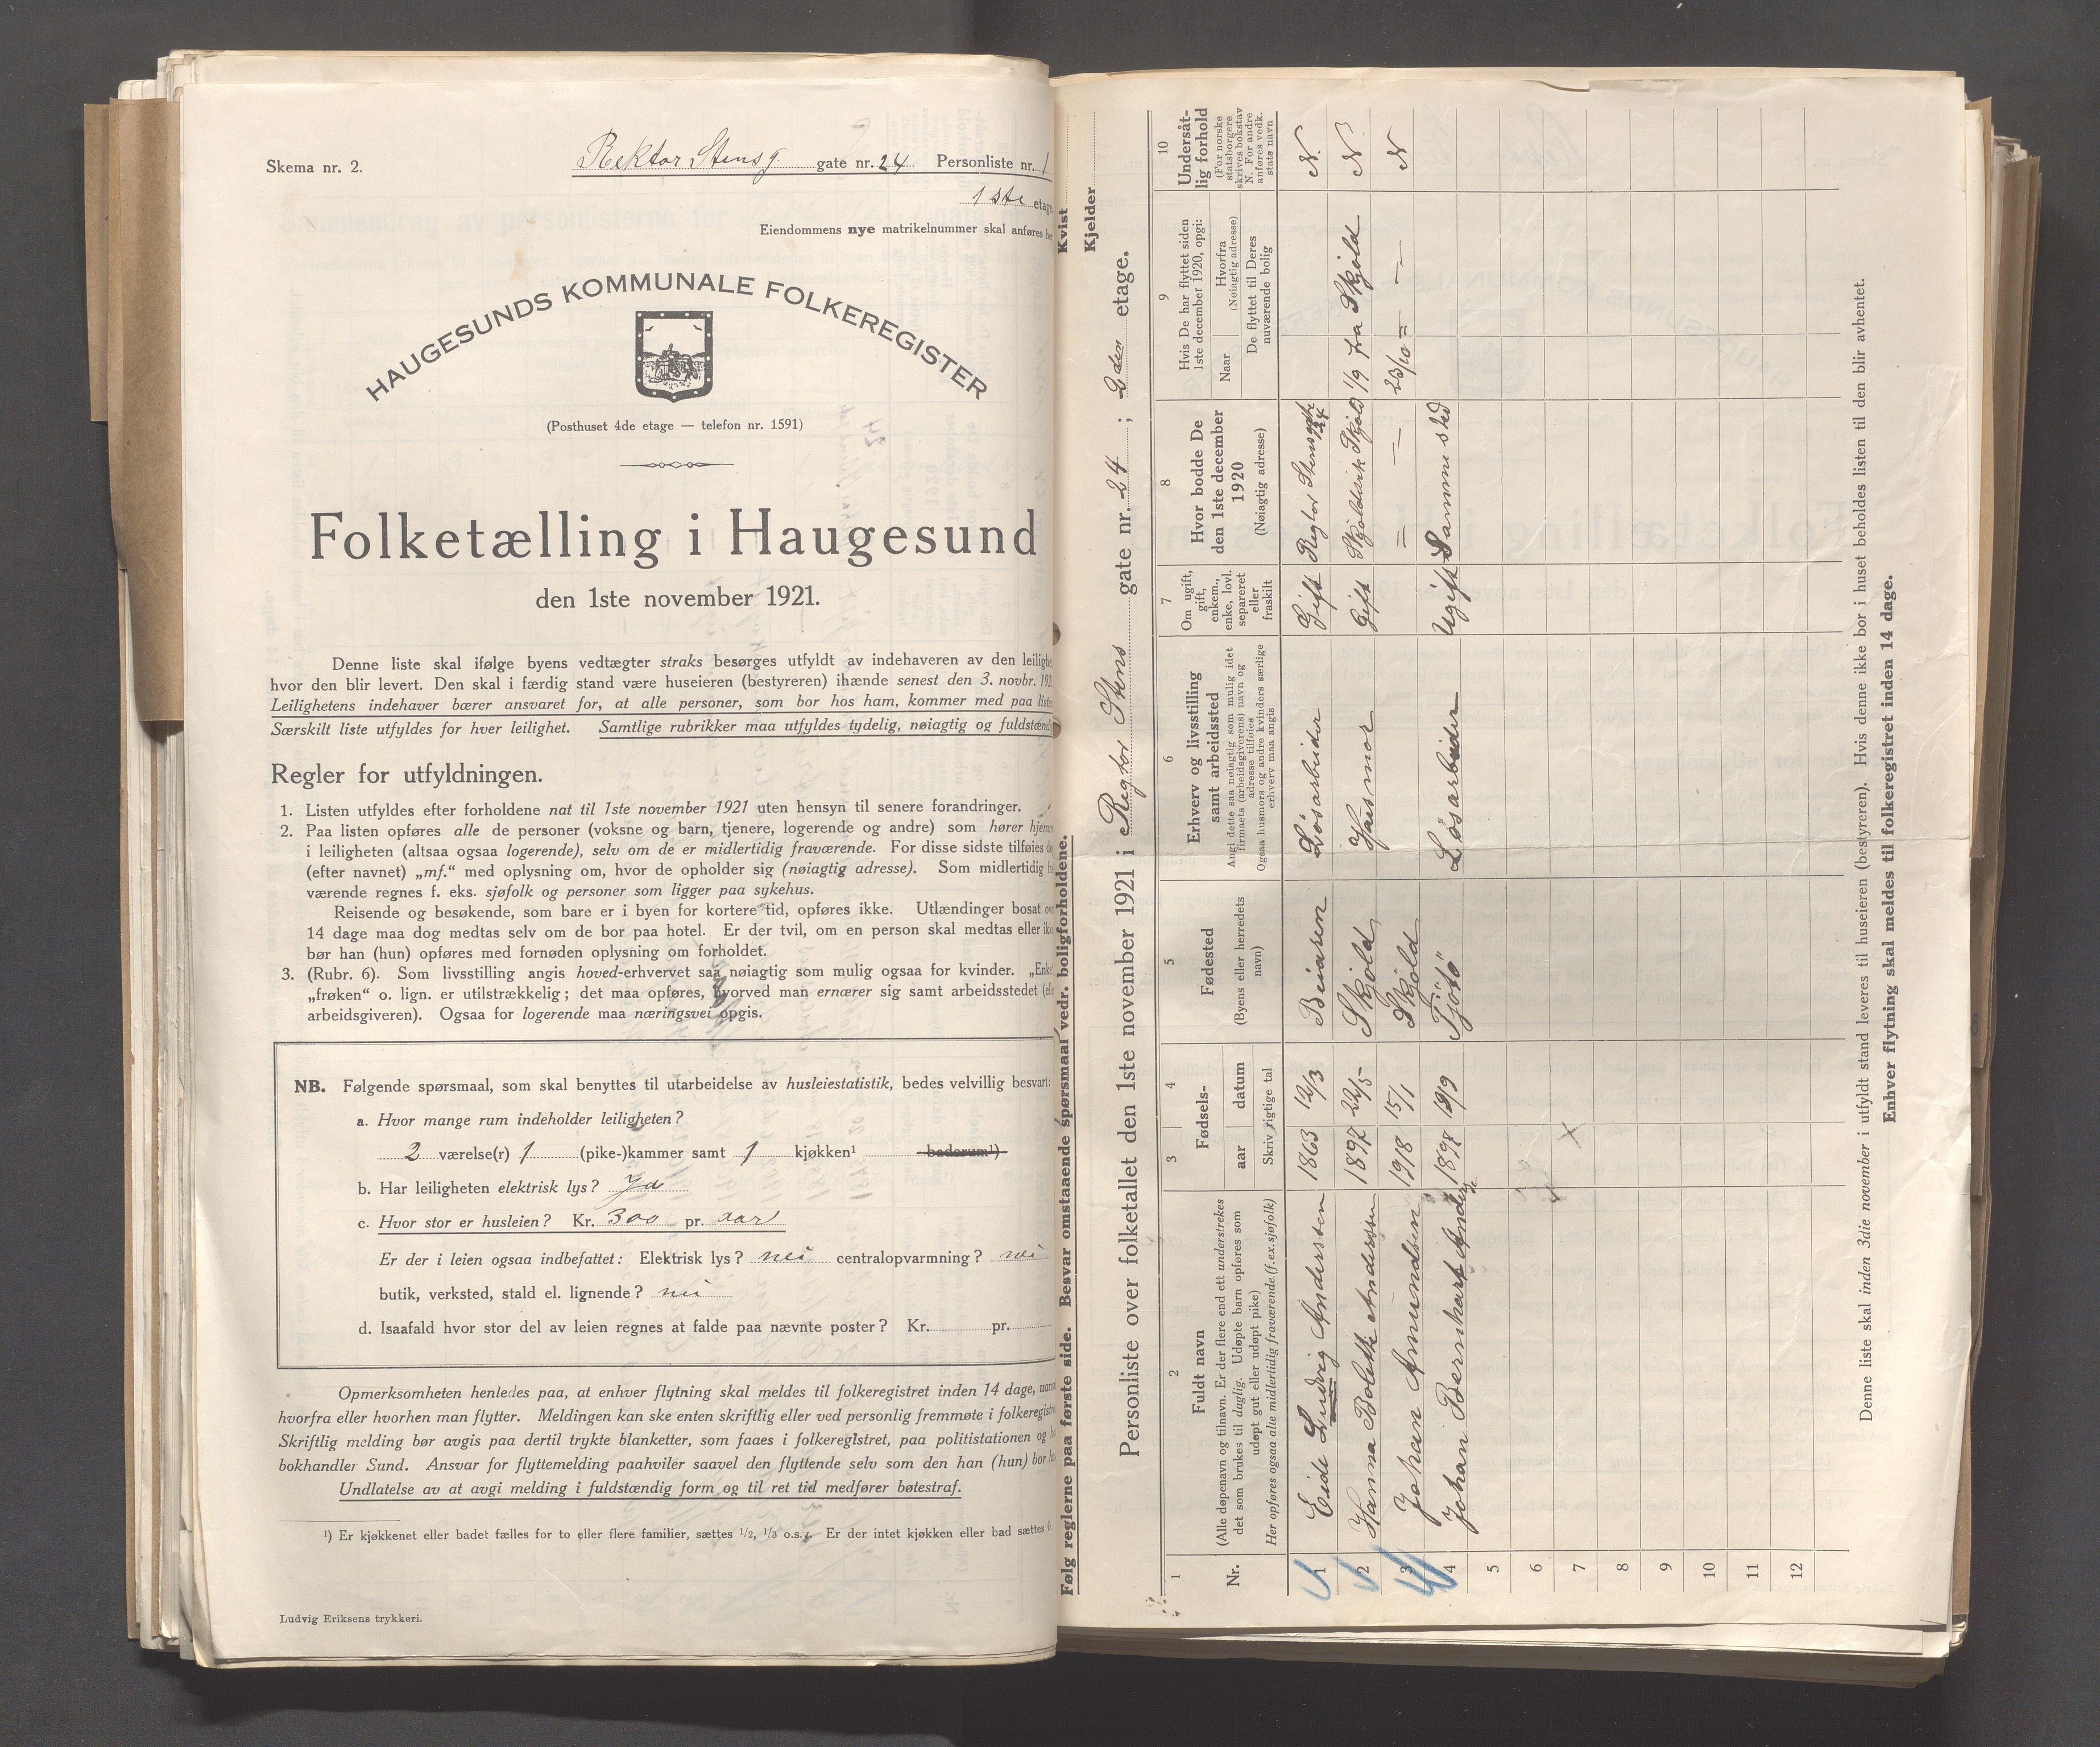 Skema nr. 2.
Rektor Stensg. gate nr. 24 Personliste nr. 1
1ste etage
Eiendommens nye matrikelnummer skal anføres her
HAUGESUNDS KOMMUNALE FOLKEREGISTER
(Posthuset 4de etage — telefon nr. 1591)
Folketælling i Haugesund
den 1ste november 1921.
Denne liste skal ifølge byens vedtægter straks besørges utfyldt av indehaveren av den leilighe
hvor den blir levert. Den skal i færdig stand være huseieren (bestyreren) ihænde senest den 3. novbr. 192
Leilighetens indehaver bærer ansvaret for, at alle personer, som bor hos ham, kommer med paa listen
Særskilt liste utfyldes for hver leilighet. Samtlige rubrikker maa utfyldes tydelig, nøiagtig og fuldstænd
Regler for utfyldningen.
1. Listen utfyldes efter forholdene nat til 1ste november 1921 uten hensyn til senere forandringer.
2. Paa listen opføres alle de personer (voksne og barn, tjenere, logerende og andre) som hører hjemme
i leiligheten (altsaa ogsaa logerende), selv om de er midlertidig fraværende. For disse sidste tilføies d
(efter navnet) „mf.“ med oplysning om, hvor de opholder sig (nøiagtig adresse). Som midlertidig fra
værende regnes f. eks. sjøfolk og personer som ligger paa sykehus.
Reisende og besøkende, som bare er i byen for kortere tid, opføres ikke. Utlændinger bosat ove
14 dage maa dog medtas selv om de bor paa hotel. Er der tvil, om en person skal medtas eller ikke
bør han (hun) opføres med fornøden oplysning om forholdet.
3. (Rubr. 6). Som livsstilling angis hoved-erhvervet saa nøiagtig som mulig ogsaa for kvinder. „Enke“
„frøken“ o. lign. er utilstrækkelig; det maa opføres, hvorved man ernærer sig samt arbeidsstedet (el
arbeidsgiveren). Ogsaa for logerende maa næringsvei opgis.
NB. Følgende spørsmaal, som skal benyttes til utarbeidelse av husleiestatistik, bedes velvillig besvart:
a. Hvor mange rum indeholder leiligheten?
2 værelse(r) 1 (pike-)kammer samt 1 kjøkken¹ baderum¹)
b. Har leiligheten elektrisk lys? Ja
c. Hvor stor er husleien? Kr. 300 pr. aar
Er der i leien ogsaa indbefattet: Elektrisk lys? nei centralopvarmning? nei
butik, verksted, stald el. lignende? nei
d. Isaafald hvor stor del av leien regnes at falde paa nævnte poster? Kr. pr.
Opmerksomheten henledes paa, at enhver flytning skal meldes til folkeregistret inden 14 dage, uanset
hvorfra eller hvorhen man flytter. Meldingen kan ske enten skriftlig eller ved personlig fremmøte i folkeregistret
Skriftlig melding bør avgis paa dertil trykte blanketter, som faaes i folkeregistret, paa politistationen og hos
bokhandler Sund. Ansvar for flyttemelding paahviler saavel den flyttende selv som den han (hun) bor hos
Undlatelse av at avgi melding i fuldstændig form og til ret tid medfører bøtestraf.
¹) Er kjøkkenet eller badet fælles for to eller flere familier, sættes 1/2, 1/3 o.s.v. Er der intet kjøkken eller bad sættes 0.
Ludvig Eriksens trykkeri.
Følg reglerne paa første side. Besvar omstaaende spørsmaal vedr. boligforholdene.
Kvist
Kjelder
Personliste over folketallet den 1ste november 1921 i Regtor Stens gate nr. 24 ; 2den etage.
1 2 3 4 5 6 7 8 9 10
Nr.
Fuldt navn
(Alle døpenavn og tilnavn. Er der flere end ett understrekes
det som brukes til daglig. Udøpte barn opføres som
udøpt gut eller udøpt pike)
Her opføres ogsaa alle midlertidig fraværende (f. ex. sjøfolk)
Fødsels-
aar datum
Skriv rigtige tal
Fødested
(Byens eller herredets
navn)
Erhverv og livsstilling
samt arbeidssted
Angi dette saa nøiagtig som mulig idet
firmaets (arbeidsgiverens) navn og
adresse tilføies
Ogsaa husmors og andre kvinders særlige
erhverv maa angis
Om ugift,
gift,
enkem.,
enke, lovl.
separeret
eller
fraskilt
Hvor bodde De
den 1ste december
1920
(Nøiagtig adresse)
Hvis De har flyttet siden
1ste december 1920, opgi:
Naar
Hvorfra
(Nøiagtig adresse)
De flyttet til Deres
nuværende bolig
Undersåt-
lig forhold
(For norske
statsborgere
skrives bokstav
N. For andre
anføres vedk.
stats navn
1 Eide Ludvig Anderssen 1863 12/3 Beiaren Løsarbeider Gift Regtor Stensgate 24 N.
2 Hanna Bolette Anderssen 1897 22/5 Skjold Husmor Gift Skjoldevik Skjold 1/9 fra Skjold N.
3 Johan Amundsen 1918 15/1 Skjold = — 23/10 = — — N
4 Johan Bernhart Anders 1898 19/9 Tjøtö Løsarbeider Ugift Samme sted
5
6
7
8
9
10
11
12
Denne liste skal inden 3die november i utfyldt stand leveres til huseieren (bestyreren). Hvis denne ikke bor i huset beholdes listen til den blir avhentet.
Enhver flytning skal meldes til folkeregistret inden 14 dage.